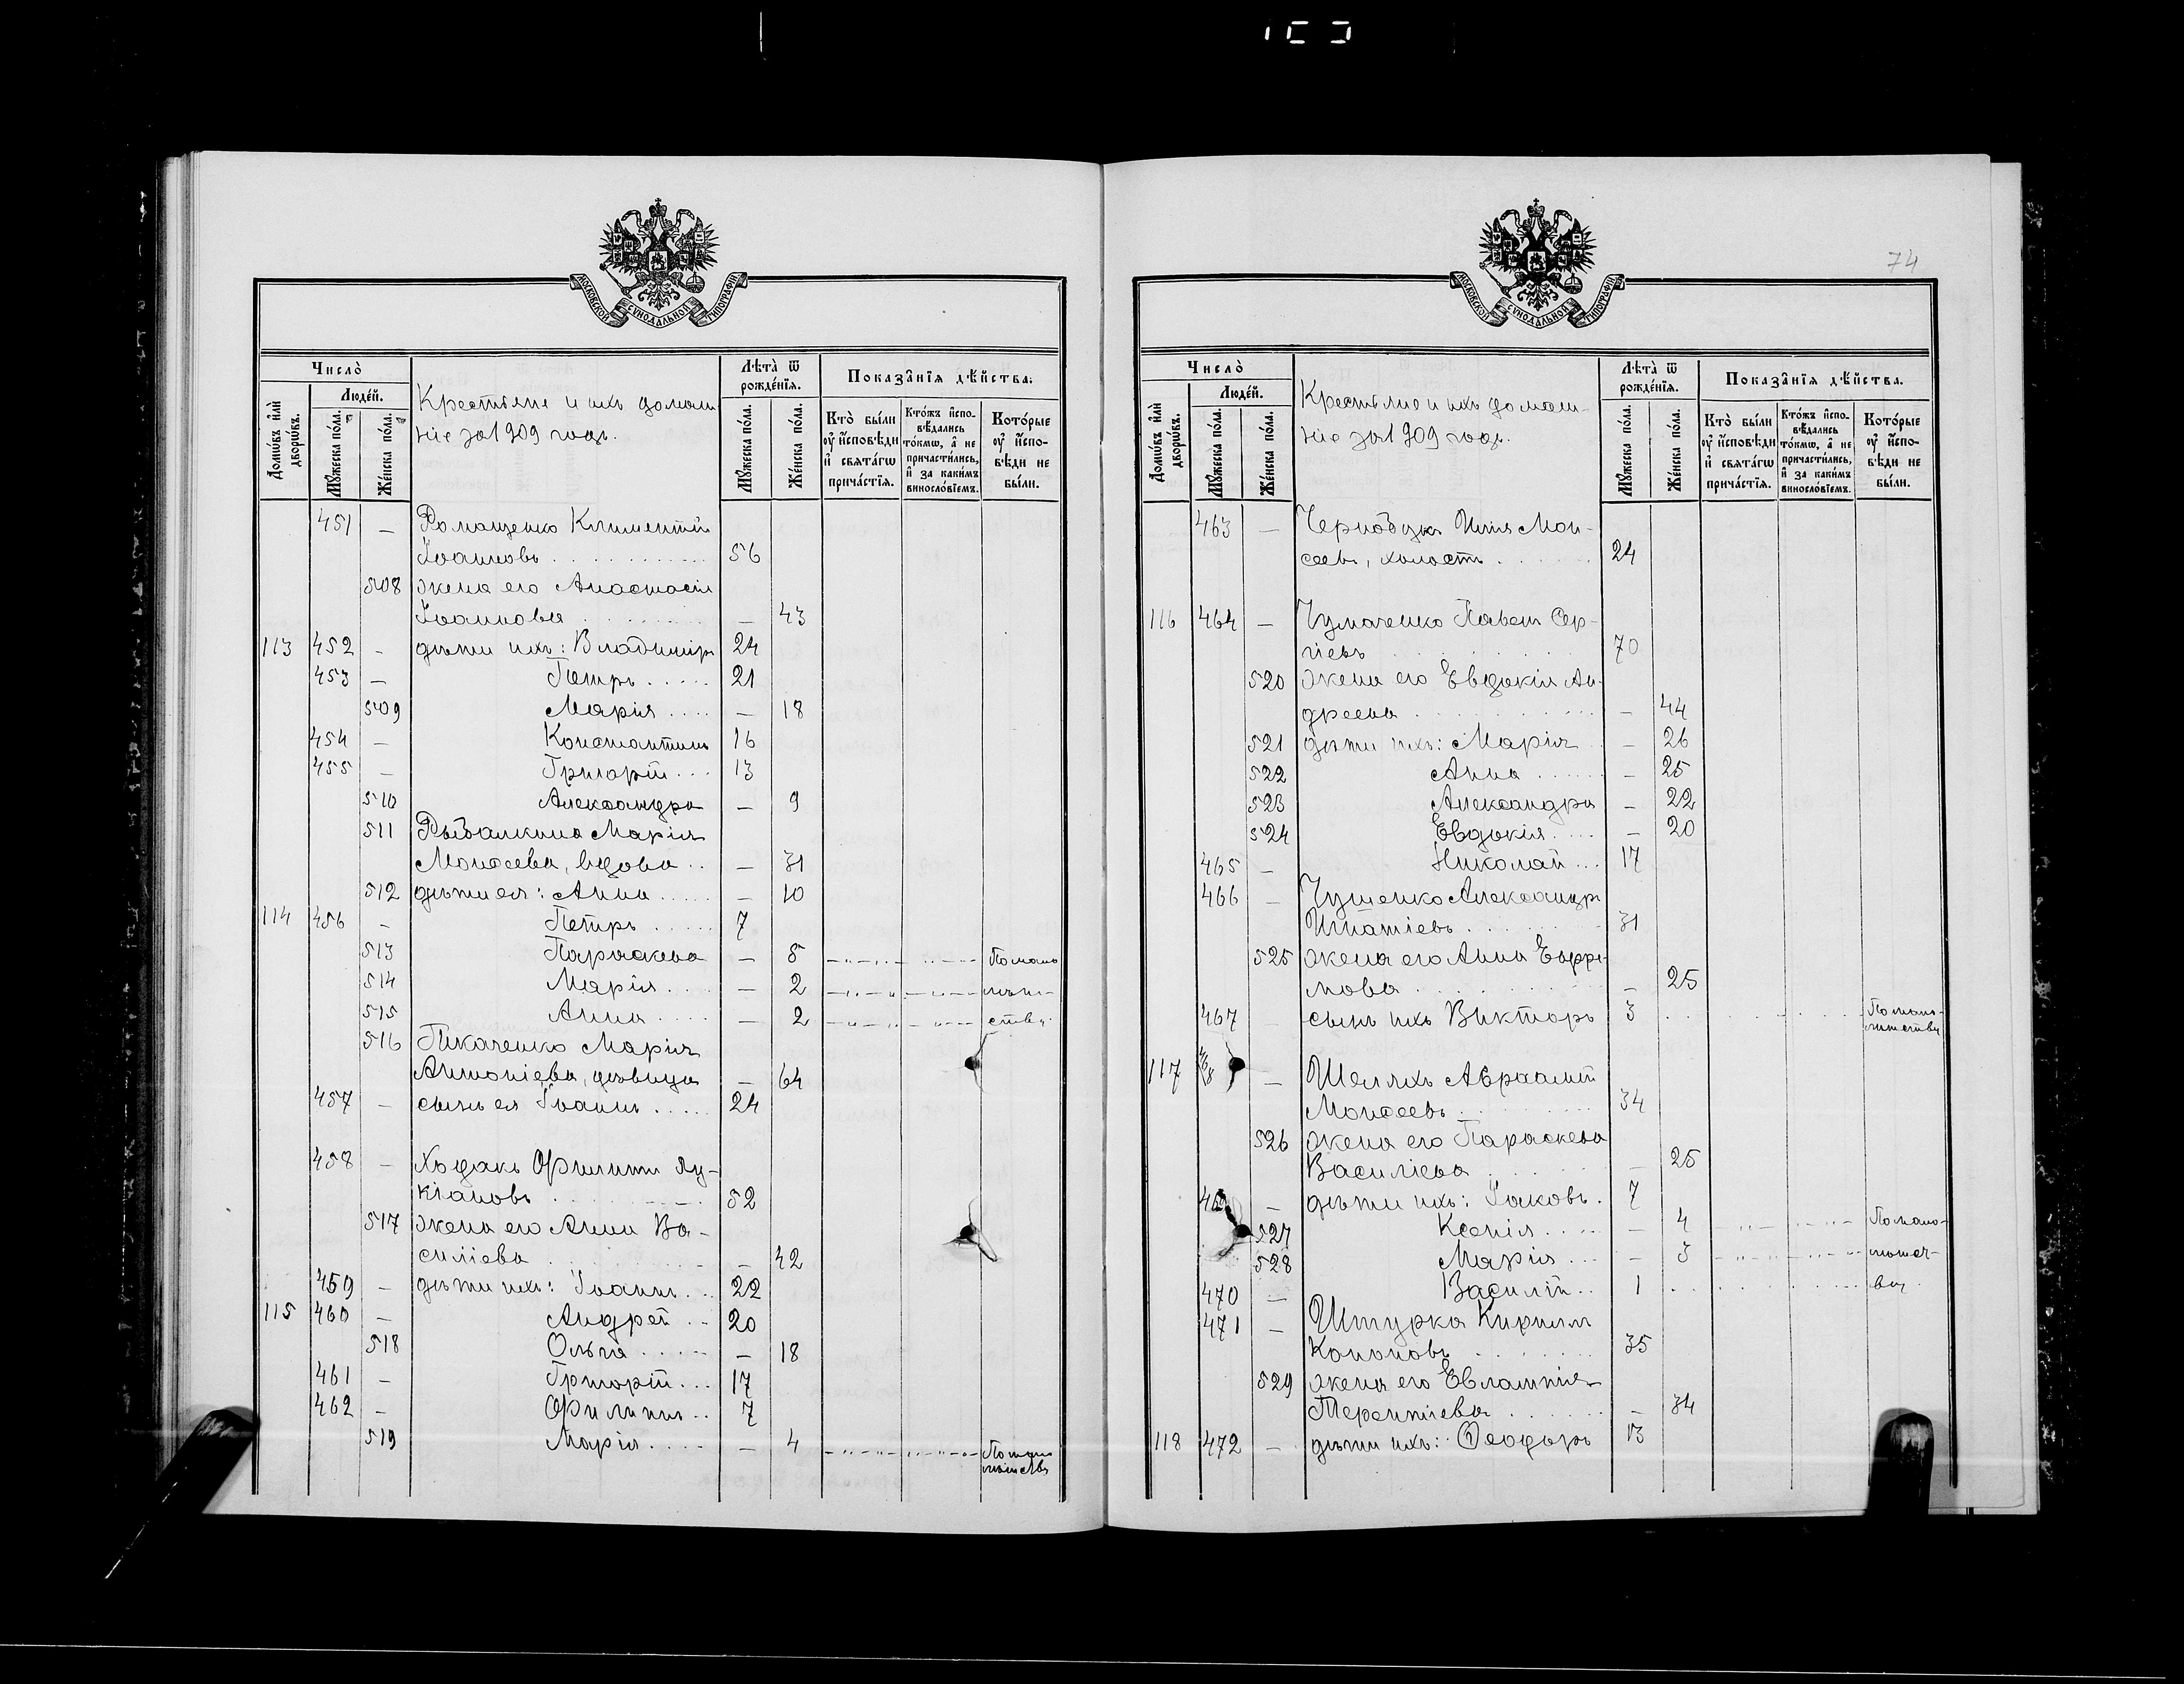 МОСКОВСКОЙ СУНОДАЛЬНОЙ ТИПОГРАФІИ
Число̀
Людéй.
Домѡ́въ и҆лѝ дворѡ́въ.
Мꙋ́жеска по́ла.
Же́нска по́ла.
Крестьяне и ихъ домаш-
ніе за 1909 годъ.
Лѣта̀ ѿ рожде́нїѧ.
Мꙋ́жеска по́ла.
Же́нска по́ла.
Показа̑нїѧ дѣ́йства.
Кто̀ бы́ли ᲂу҆ и҆́сповѣди и҆ свѧта́гѡ прича́стїѧ.
Кто́жъ и҆спо-вѣ́дались то́кмѡ, а҆ не причасти́лись, и҆ за каки́мъ винословїемъ.
Кото́рые ᲂу҆ и҆́спо-вѣди не бы́ли.
451 — Ромащенко Климентій
Іоанновъ 56
508 жена его Анастасія
Іоаннова — 43
113 452 — дѣти ихъ: Владиміръ 24
453 — Петръ 21
509 Марія — 18
454 — Константинъ 16
455 — Григорій 13
510 Александра — 9
511 Рыбалкина Марія
Моисеева, вдова — 31
512 дѣти ея: Анна — 10
114 456 — Петръ 7
513 Параскева — 5 По мало
514 Марія — 2 лѣт-
515 Анна — 2 ству.
516 Ткаченко Марія
Антоніева, дѣвица — 64
457 — сынъ ея Іоаннъ 24
458 — Ходакъ Филиппъ Лу-
кіановъ 52
517 жена его Анна Ва-
силіева — 42
459 — дѣти ихъ: Іоаннъ 22
115 460 — Андрей 20
518 Ольга — 18
461 — Григорій 17
462 — Филиппъ 7
519 Марія — 4 По мало
лѣтству
74
МОСКОВСКОЙ СУНОДАЛЬНОЙ ТИПОГРАФІИ
Число̀
Людéй.
Домѡ́въ и҆лѝ дворѡ́въ.
Мꙋ́жеска по́ла.
Же́нска по́ла.
Крестьяне и ихъ домаш-
ніе за 1909 годъ.
Лѣта̀ ѿ рожде́нїѧ.
Мꙋ́жеска по́ла.
Же́нска по́ла.
Показа̑нїѧ дѣ́йства.
Кто̀ бы́ли ᲂу҆ и҆́сповѣди и҆ свѧта́гѡ прича́стїѧ.
Кто́жъ и҆спо-вѣ́дались то́кмѡ, а҆ не причасти́лись, и҆ за каки́мъ винословїемъ.
Кото́рые ᲂу҆ и҆́спо-вѣди не бы́ли.
463 — Илія Мои-
сеевъ, холостъ 24
116 464 — Чумаченко Павелъ Сер-
гіевъ 70
520 жена его Евдокія Ан-
дреева — 44
521 дѣти ихъ: Марія — 26
522 Анна — 25
523 Александра — 22
524 Евдокія — 20
465 — Николай 17
466 — Чушенко Александръ
Игнатіевъ 31
525 жена его Анна Ефре-
мова — 25
467 — сынъ ихъ Викторъ 3 По мало-
лѣтству
117 468 — Шеляхъ Авраамій
Моисеевъ 34
526 жена его Параскева
Василіева — 25
469 — дѣти ихъ: Іаковъ 7
527 Ксенія — 4 По мало-
528 Марія — 3 лѣтст-
470 — Василій 1 ву.
471 — Штурка Кириллъ
Кононовъ 35
529 жена его Евлампія
Терентіева — 34
118 472 — дѣти ихъ: Ѳеодоръ 13